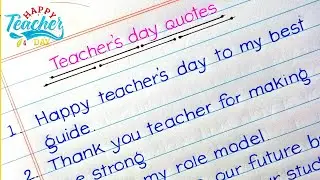 HAPPY
Teacher
DAY
Teacher's day quotes
1. Happy teacher's day to my best
guide.
2. Thank you teacher for making
strong
my role model
our future b
ur stud